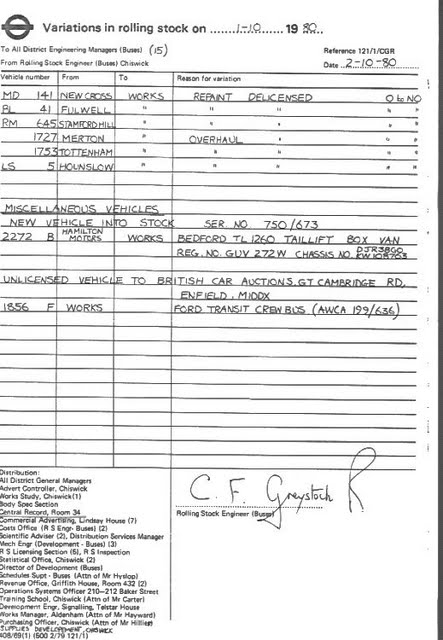 Variations in rolling stock on 1-10 1980
To All District Engineering Managers (Buses) (15)
Reference 121/1/CGR
From Rolling Stock Engineer (Buses) Chiswick
Date 2-10-80
Vehicle number From To Reason for variation
MD 141 NEW CROSS WORKS REPAINT DELICENSED O to NO
RL 41 FULWELL " " " " "
RM 645 STAMFORD HILL " " " " "
1727 MERTON " OVERHAUL " " "
1753 TOTTENHAM " " " " "
LS 5 HOUNSLOW " " " " "
MISCELLANEOUS VEHICLES
NEW VEHICLE INTO STOCK SER. NO 750/673
2272 B HAMILTON MOTORS WORKS BEDFORD TL 1260 TAILLIFT BOX VAN
REG. NO. GUV 272W CHASSIS NO. DJR3BG0 KW108703
UNLICENSED VEHICLE TO BRITISH CAR AUCTIONS. GT CAMBRIDGE RD,
ENFIELD. MIDDX
1856 F WORKS FORD TRANSIT CREWBUS (AWCA 199/636)
Distribution:
All District General Managers
Advert Controller, Chiswick
Works Study, Chiswick(1)
Body Spec Section
Central Record, Room 34
Commercial Advertising, Lindsay House (7)
Costs Office (R S Engr- Buses) (2)
Scientific Adviser (2), Distribution Services Manager
Mech Engr (Development - Buses) (3)
R S Licensing Section (5), R S Inspection
Statistical Office, Chiswick (2)
Director of Development (Buses)
Schedules Supt - Buses (Attn of Mr Hyslop)
Revenue Office, Griffith House, Room 432 (2)
Operations Systems Officer 210-212 Baker Street
Training School, Chiswick (Attn of Mr Carter)
Development Engr, Signalling, Telstar House
Works Manager, Aldenham (Attn of Mr Hayward)
Purchasing Officer, Chiswick (Attn of Mr Hillier)
SUPPLIES DEVELOPEMENT, CHISWICK
408/69(1) (500 2/79 121/1)
C. F. Greystock R
Rolling Stock Engineer (Buses)